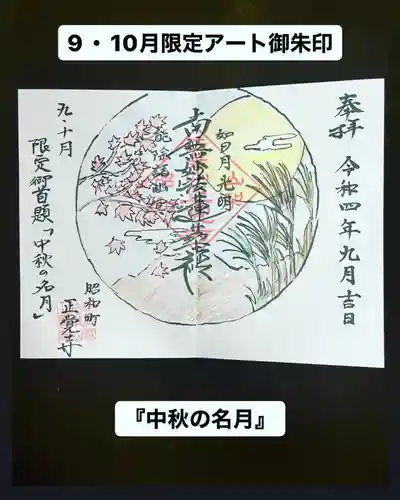 9・10月限定アート御朱印
奉拝
令和四年九月吉日
如日月光明
南無妙法蓮華経
能除諸幽冥
九・十月
限定御首題「中秋の名月」
昭和町
正覚寺
『中秋の名月』